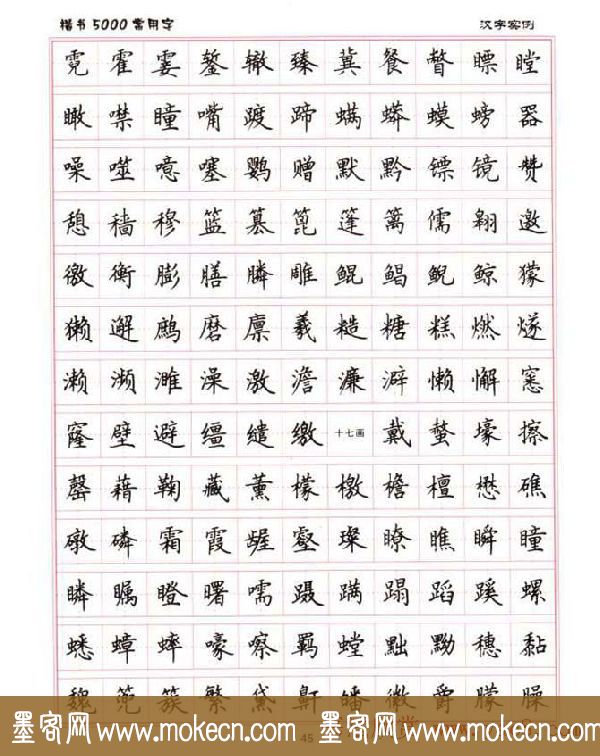 楷书5000常用字 汉字实例
霓 霍 霎 錾 辙 臻 冀 餐 瞥 瞟 瞠
瞰 噤 瞳 嘴 踱 蹄 螨 蟒 蟆 螃 器
噪 噬 噫 噻 鹦 赠 默 黔 镖 镜 赞
憩 穑 穆 篮 篡 篦 篷 篱 儒 翱 邀
徼 衡 膨 膳 膦 雕 鲲 鲳 鲵 鲸 獴
獭 邂 鹧 磨 廪 羲 糙 糖 糕 燃 燧
濑 濒 濉 澡 激 澹 濂 澼 懒 懈 窸
窿 壁 避 缰 缱 缴 十七画 戴 螯 壕 擦
罄 藉 鞠 藏 薰 檬 檄 檐 檀 懋 礁
礅 磷 霜 霞 龌 壑 璨 瞭 瞧 瞬 瞳
瞵 瞩 瞪 曙 嚅 蹑 蹒 蹋 蹈 蹊 螺
蟋 蟑 蟀 嚎 嚓 羁 螳 黜 黝 穗 黏
魏 簇 繁 黛 鼾 皤 徽 爵 朦 臊
45
墨客网 www.mokecn.com 墨客网 www.mokecn.com